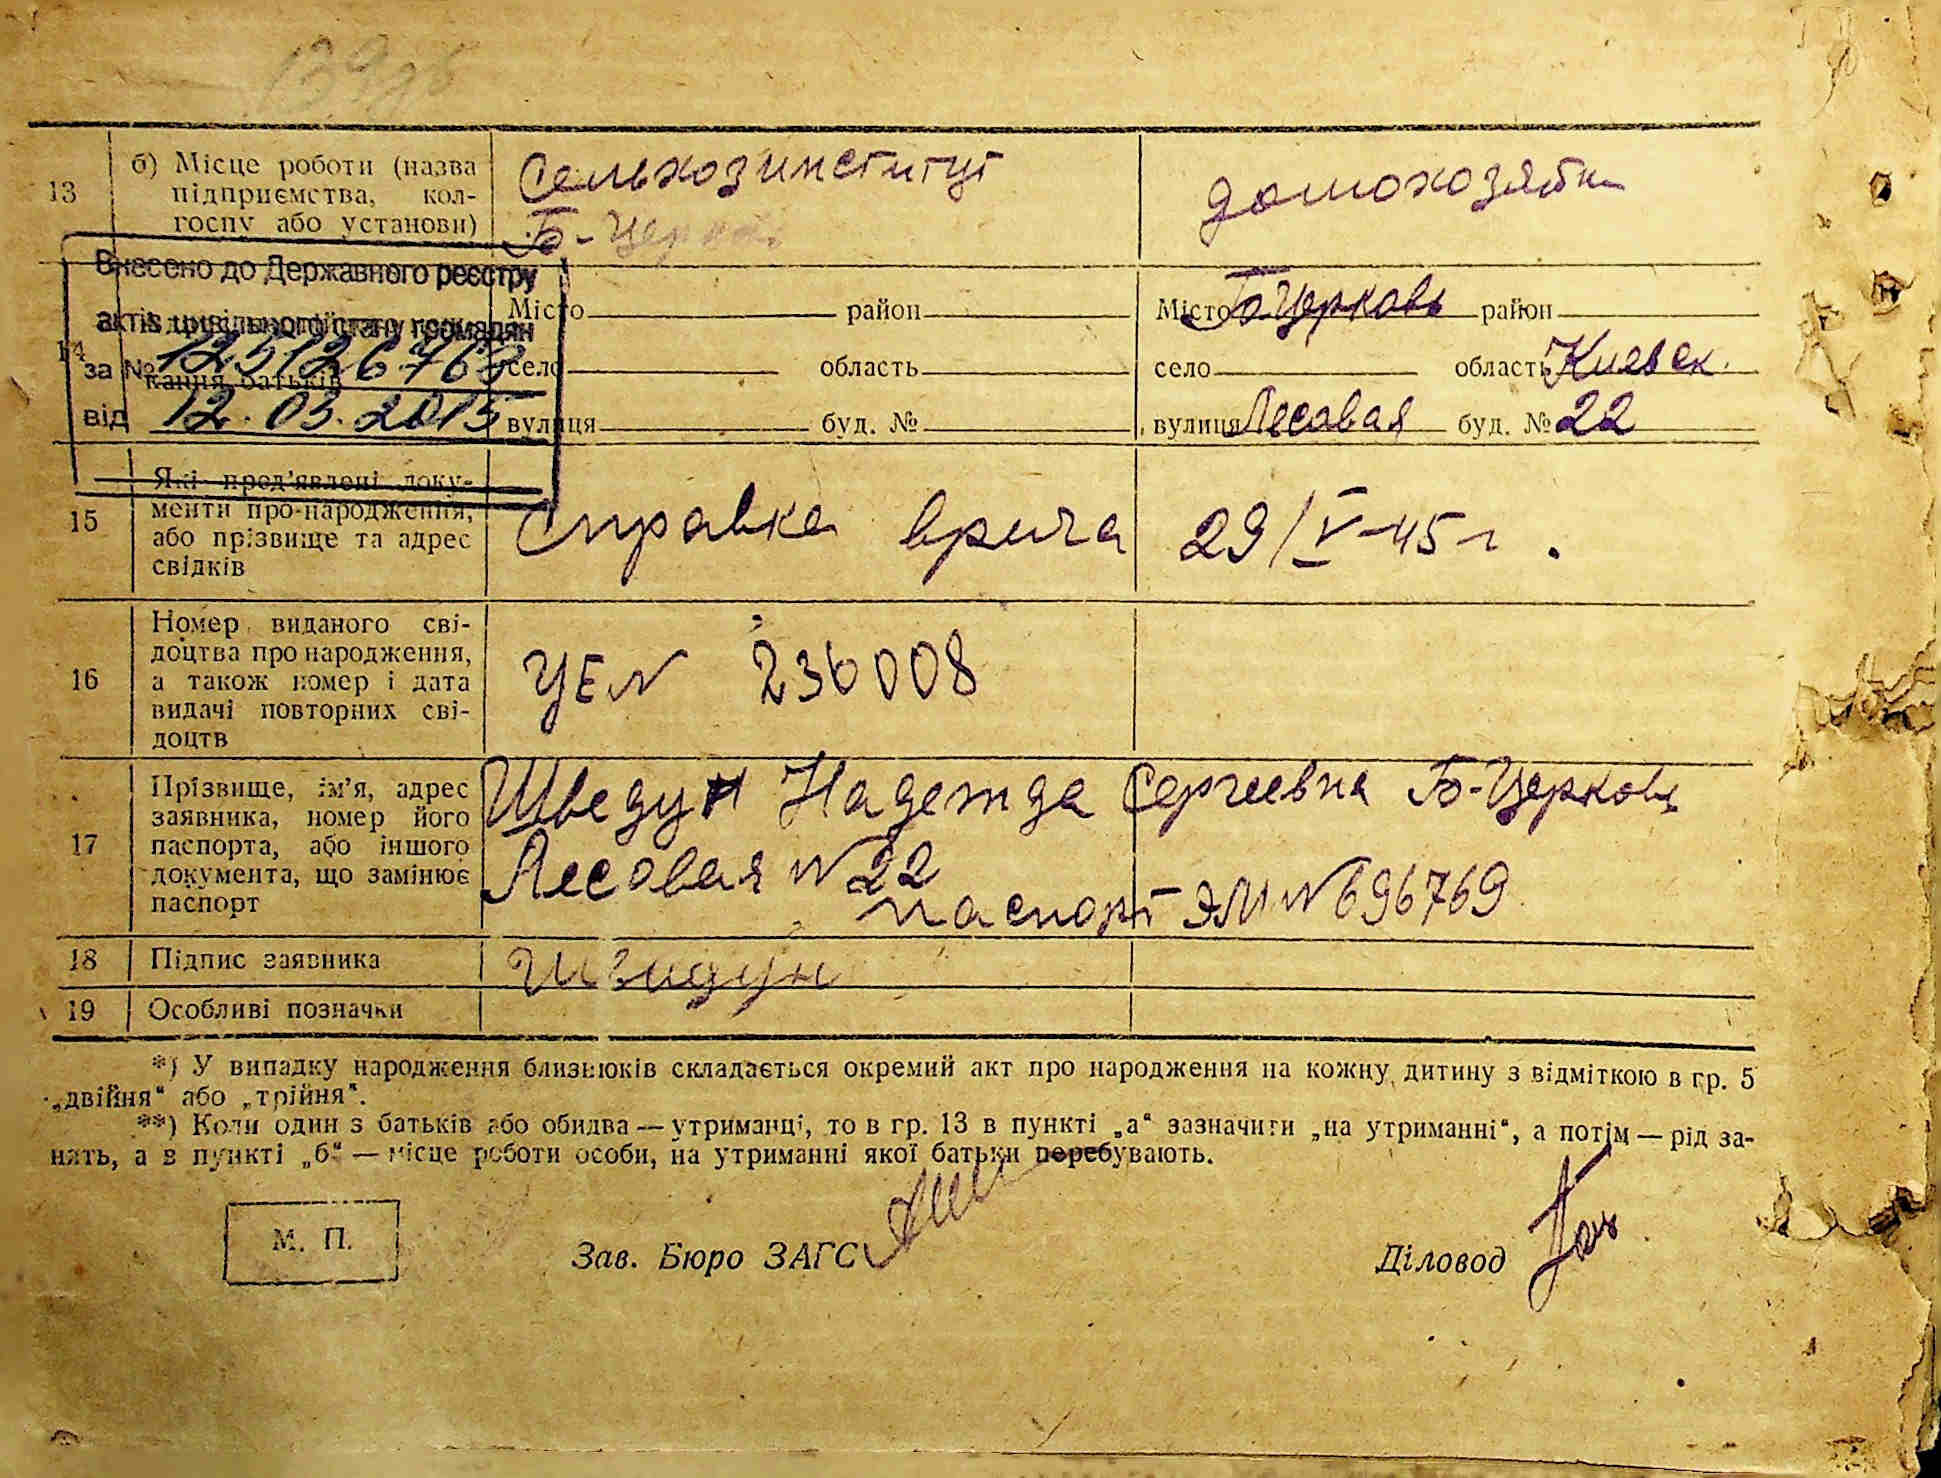 139
13 б) Місце роботи (назва підприємства, кол-
госпу або установи)
Сельхозинститут
Б-Церковь
домохозяйка
Внесено до Державного реєстру
актів цивільного стану громадян
за №
від 12.03.2015
14
кання батьків
Місто район
село область
вулиця буд. №
Місто Б-Церковь район
село область Киевск.
вулиця Лесовая буд. № 22
15 Які пред'явлені доку-
менти про народження,
або прізвище та адрес
свідків
Справка врача 29/V-45 г.
16 Номер виданого сві-
доцтва про народження,
а також номер і дата
видачі повторних сві-
доцтв
УЕ N 236008
17 Прізвище, ім'я, адрес
заявника, номер його
паспорта, або іншого
документа, що замінює
паспорт
Шведун Надежда Сергеевна Б-Церковь
Лесовая N 22
паспорт ЭМ N 696769
18 Підпис заявника
19 Особливі позначки
*) У випадку народження близнюків складається окремий акт про народження на кожну дитину з відміткою в гр. 5
„двійня“ або „трійня“.
**) Коли один з батьків або обидва — утриманці, то в гр. 13 в пункті „а“ зазначити „на утриманні“, а потім — рід за-
нять, а в пункті „б“ — місце роботи особи, на утриманні якої батьки перебувають.
М. П.
Зав. Бюро ЗАГС
Діловод